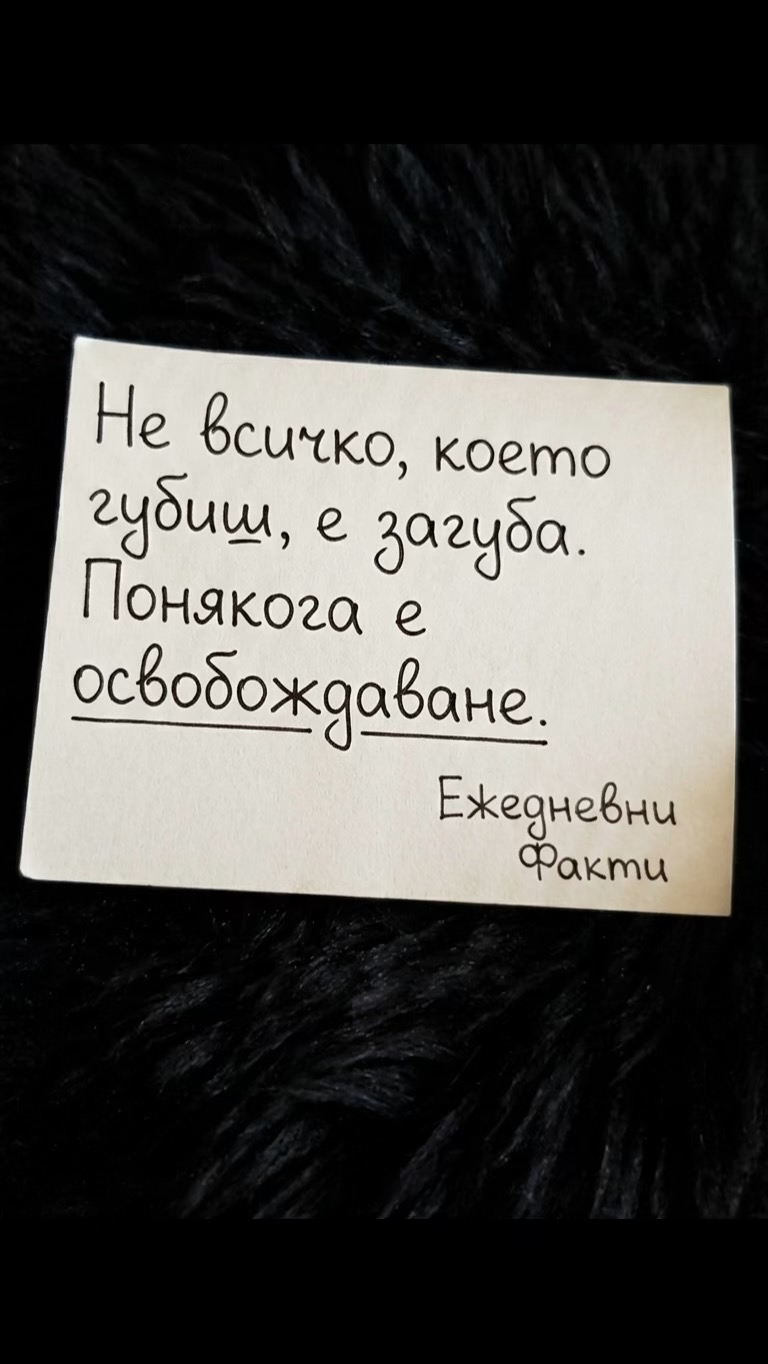 Не всичко, което
губиш, е загуба.
Понякога е
освобождаване.
Ежедневни
Факти